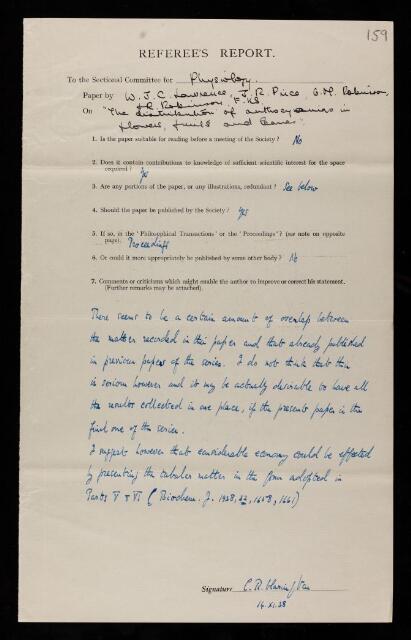 159
REFEREE'S REPORT.
To the Sectional Committee for Physiology.
Paper by W. J. C. Lawrence, J. R. Price, G. M. Robinson,
& R. Robinson, F.R.S.
On "The distribution of anthocyanins in
flowers, fruits and leaves".
1. Is the paper suitable for reading before a meeting of the Society? No
2. Does it contain contributions to knowledge of sufficient scientific interest for the space
required? Yes
3. Are any portions of the paper, or any illustrations, redundant? See below
4. Should the paper be published by the Society? Yes
5. If so, in the 'Philosophical Transactions' or the 'Proceedings'? (see note on opposite
page). Proceedings
6. Or could it more appropriately be published by some other body? No
7. Comments or criticisms which might enable the author to improve or correct his statement.
(Further remarks may be attached).
There seems to be a certain amount of overlap between
the matter recorded in this paper and that already published
in previous papers of the series. I do not think that this
is serious however and it may be actually desirable to have all
the results collected in one place, if the present paper is the
final one of the series.
I suggest however that considerable economy could be effected
by presenting the tabular matter in the form adopted in
Parts V & VI (Biochem. J. 1938, 32, 1658, 1661)
Signature C. R. Harington
14.XI.38